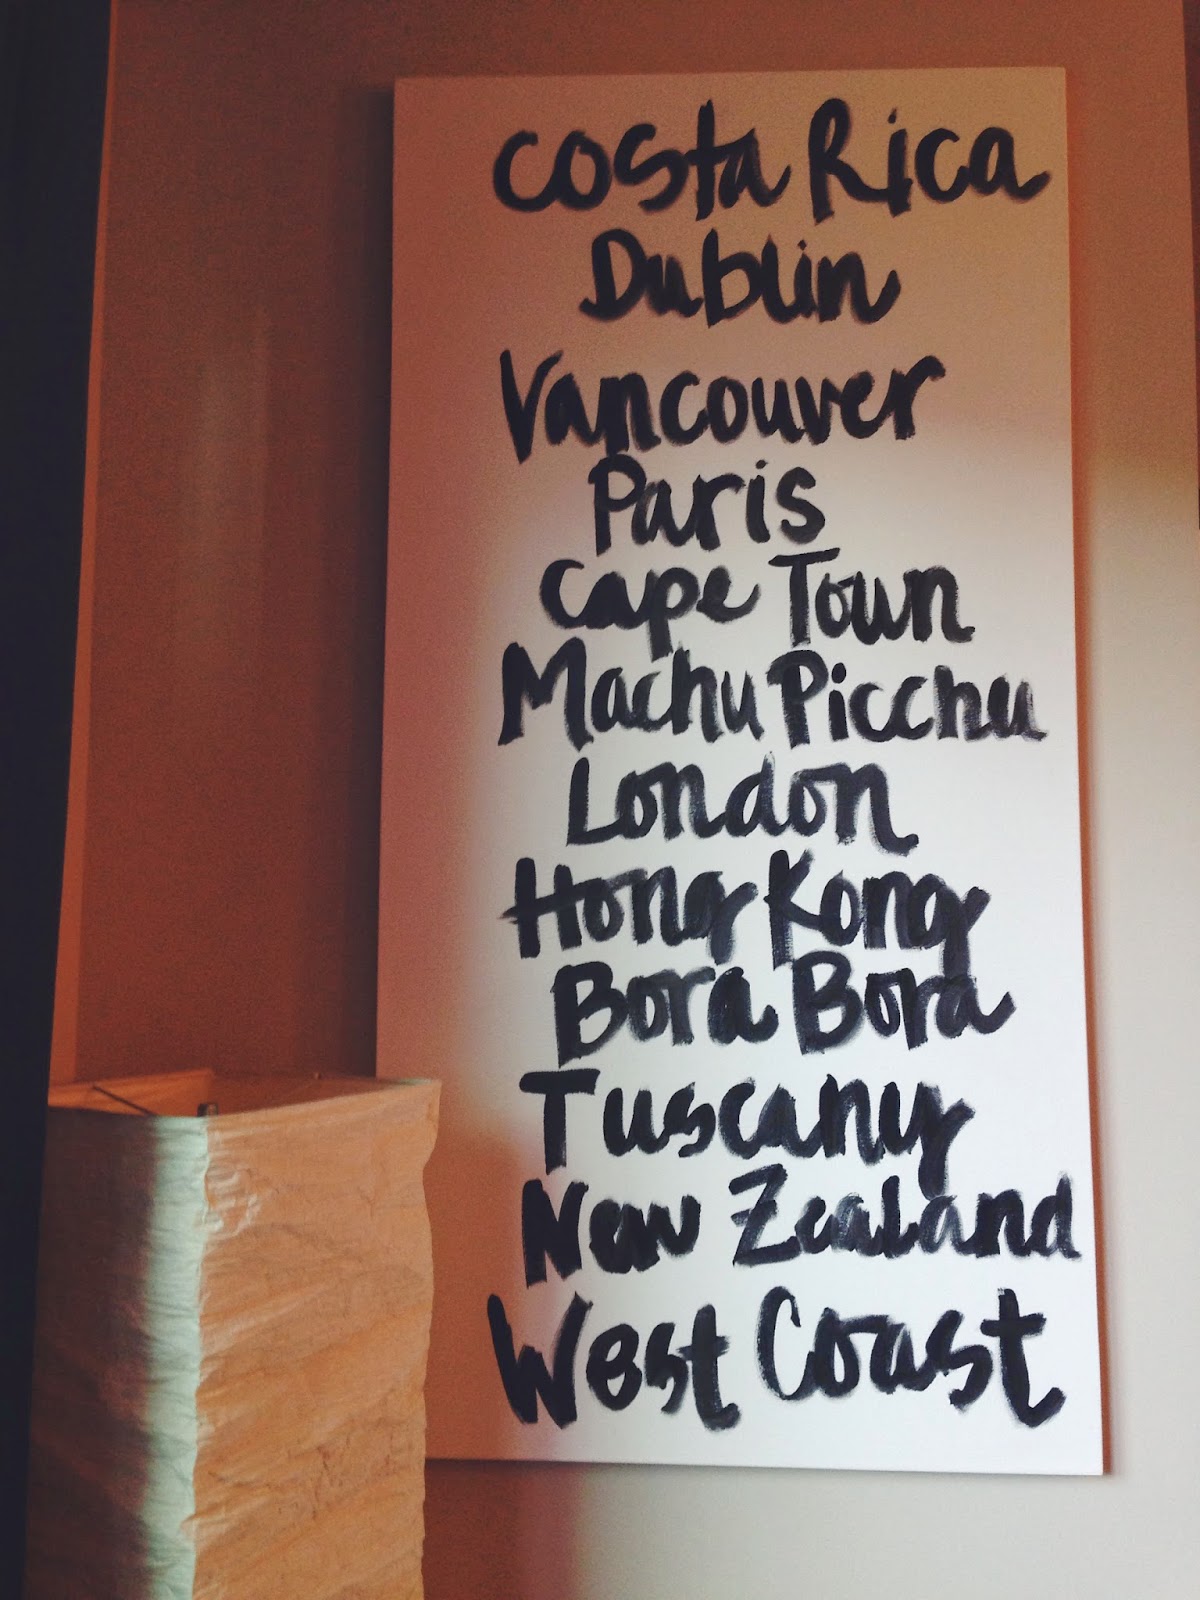 Costa Rica
Dublin
Vancouver
Paris
Cape Town
Machu Picchu
London
Hong Kong
Bora Bora
Tuscany
New Zealand
West Coast